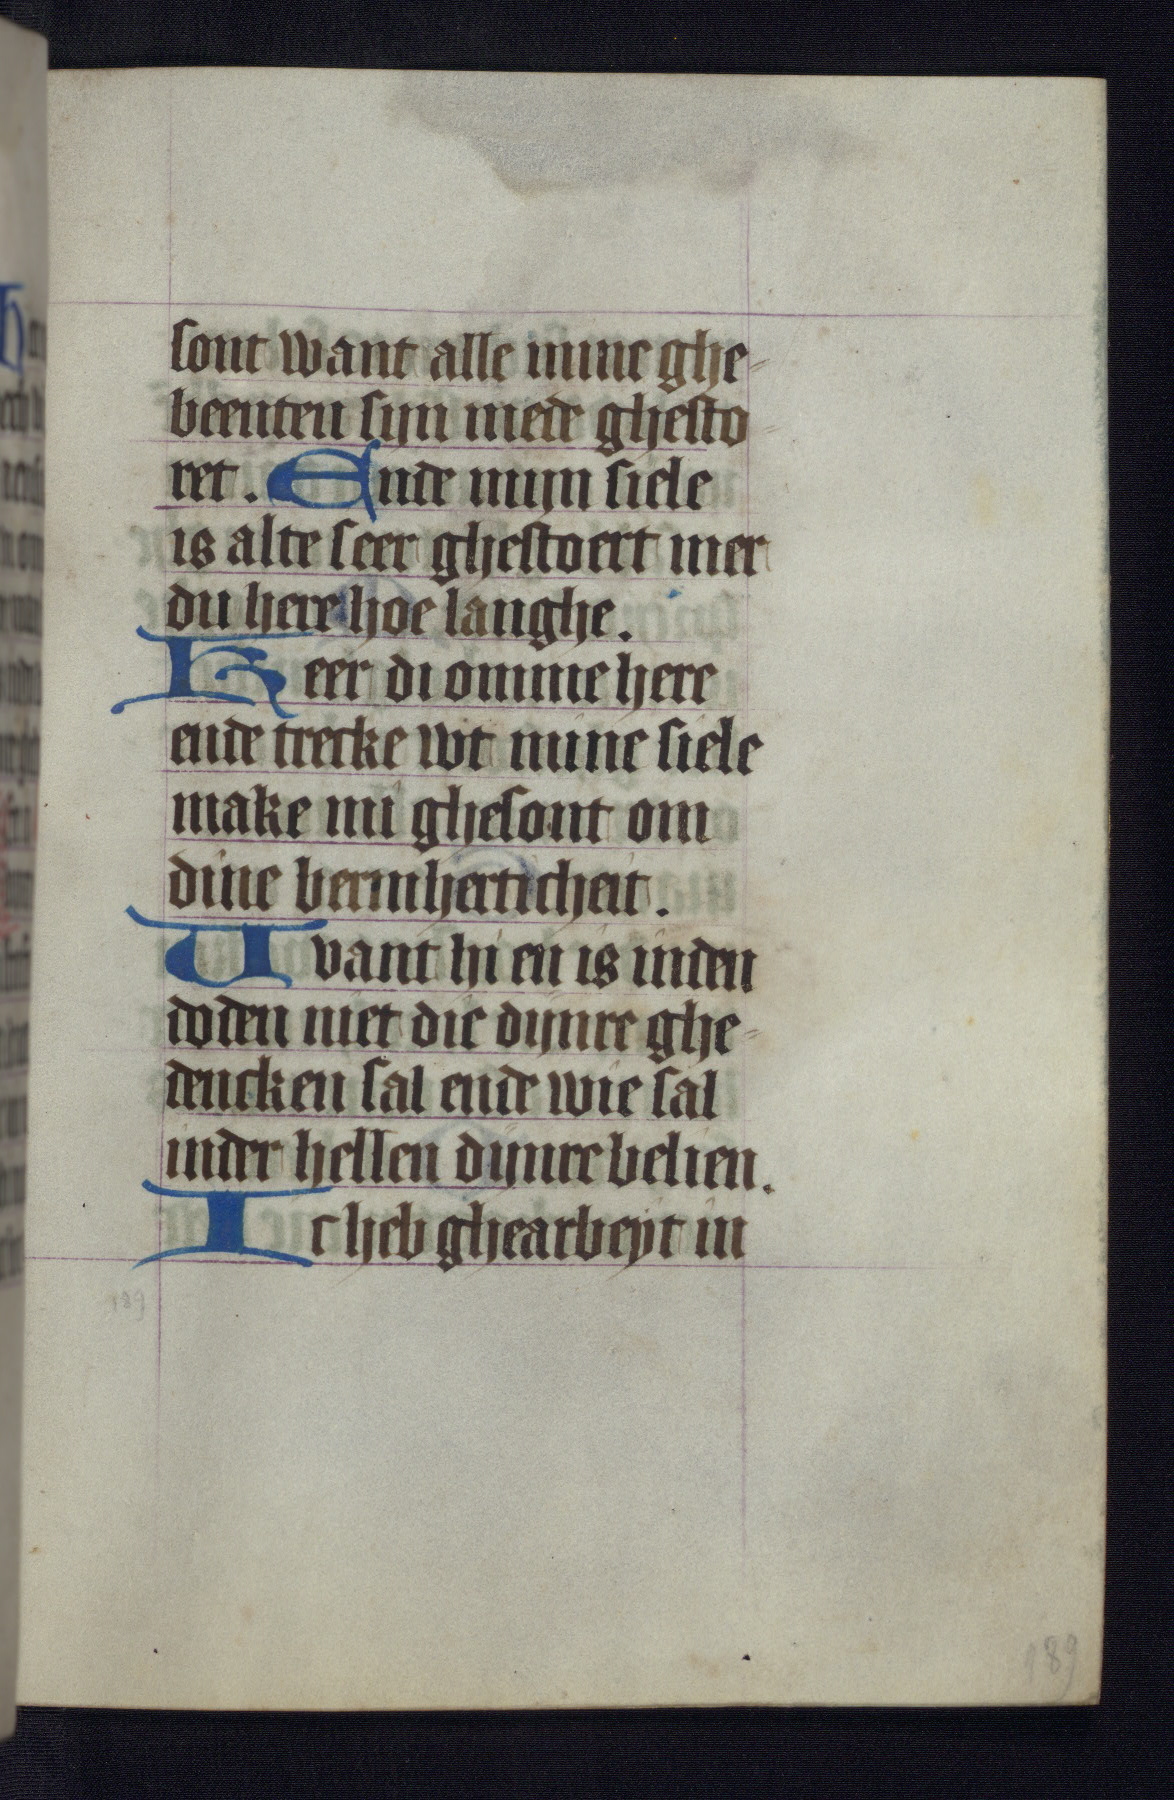 sont want alle mine ghe-
beenten sijn mede ghesto
ret. Ende mijn siele
is alte seer ghestoert mer
du here hoe langhe.
Keer di omme here
ende trecke wt mine siele
make mi ghesont om
dine bermherticheit.
Want hi en is inden
doden niet die dijnre ghe-
dencken sal ende wie sal
inder hellen dijnre belien.
Ic heb ghearbeyt in
189
189